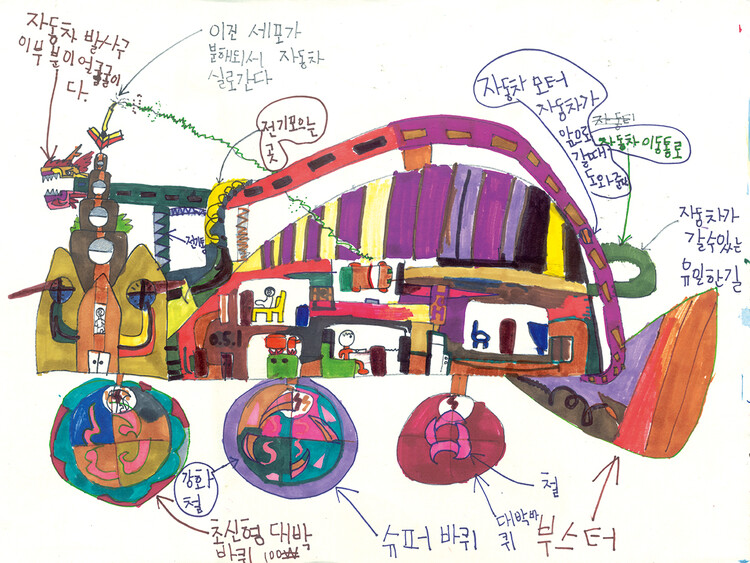 자동차 발사구
이부분이 얼굴
이다.
이건 세포가
분해되서 자동차
실로간다
전기모으는
곳
자동차 모터
자동차가
앞으로
갈때
도와준다
자동차 이동통로
자동차가
갈수있는
유일한길
O.S.1
강화
철
초신형 대박
바퀴
슈퍼 바퀴
철
대박바
퀴
부스터